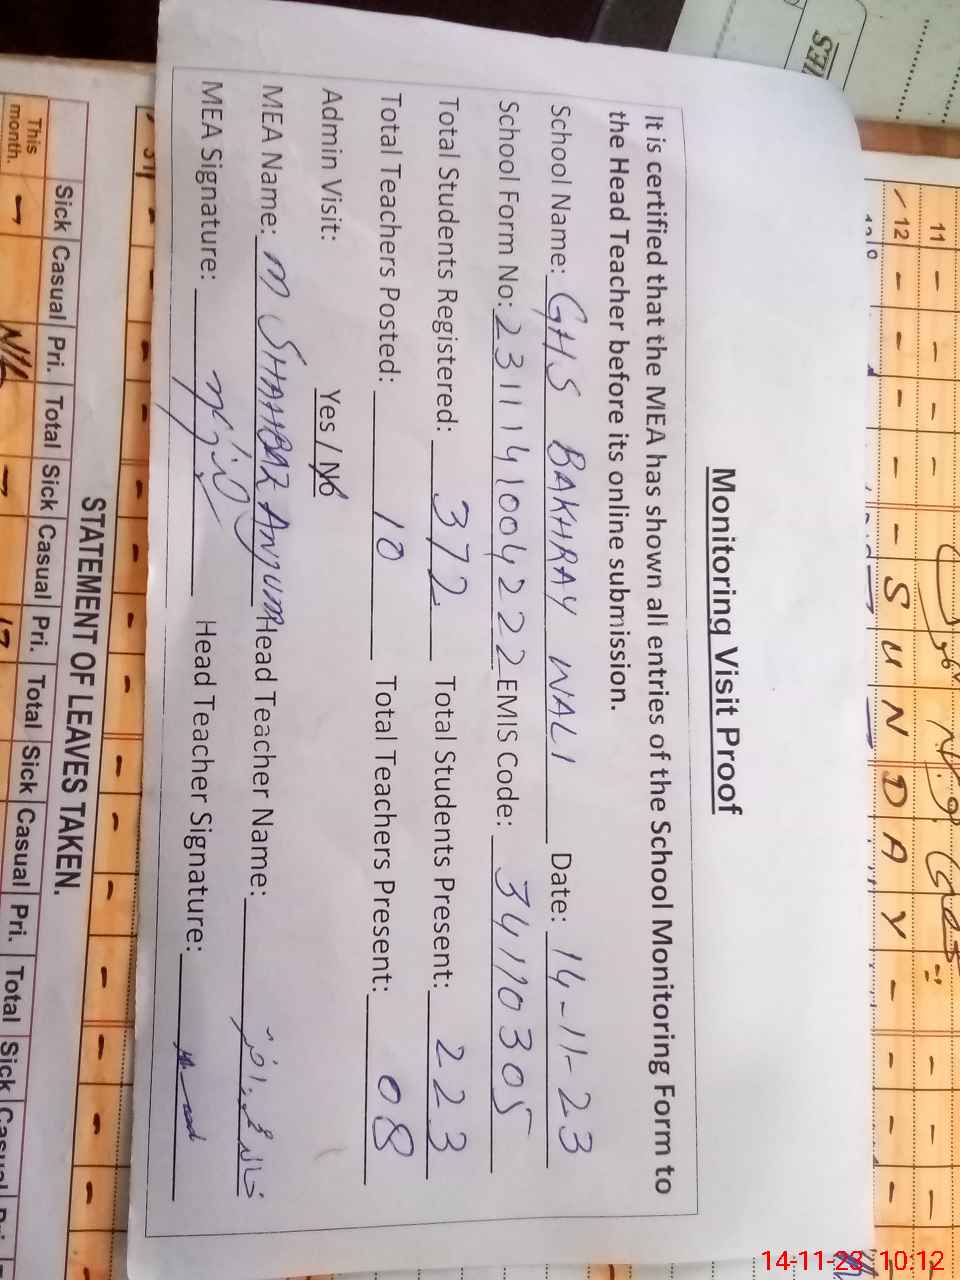 Monitoring Visit Proof
It is certified that the MEA has shown all entries of the School Monitoring Form to
the Head Teacher before its online submission.
School Name: GHS BAKHRAY WALI Date: 14-11-23
School Form No: 2311141004222 EMIS Code: 34110305
Total Students Registered: 372 Total Students Present: 223
Total Teachers Posted: 10 Total Teachers Present: 08
Admin Visit: Yes / No
MEA Name: M SHAHBAZ Anjum Head Teacher Name:
MEA Signature: Head Teacher Signature:
STATEMENT OF LEAVES TAKEN.
Sick Casual Pri. Total Sick Casual Pri. Total Sick Casual Pri. Total Sick
This
month.
11
12 - - - - - SUNDAY - - -
14-11-23 10:12